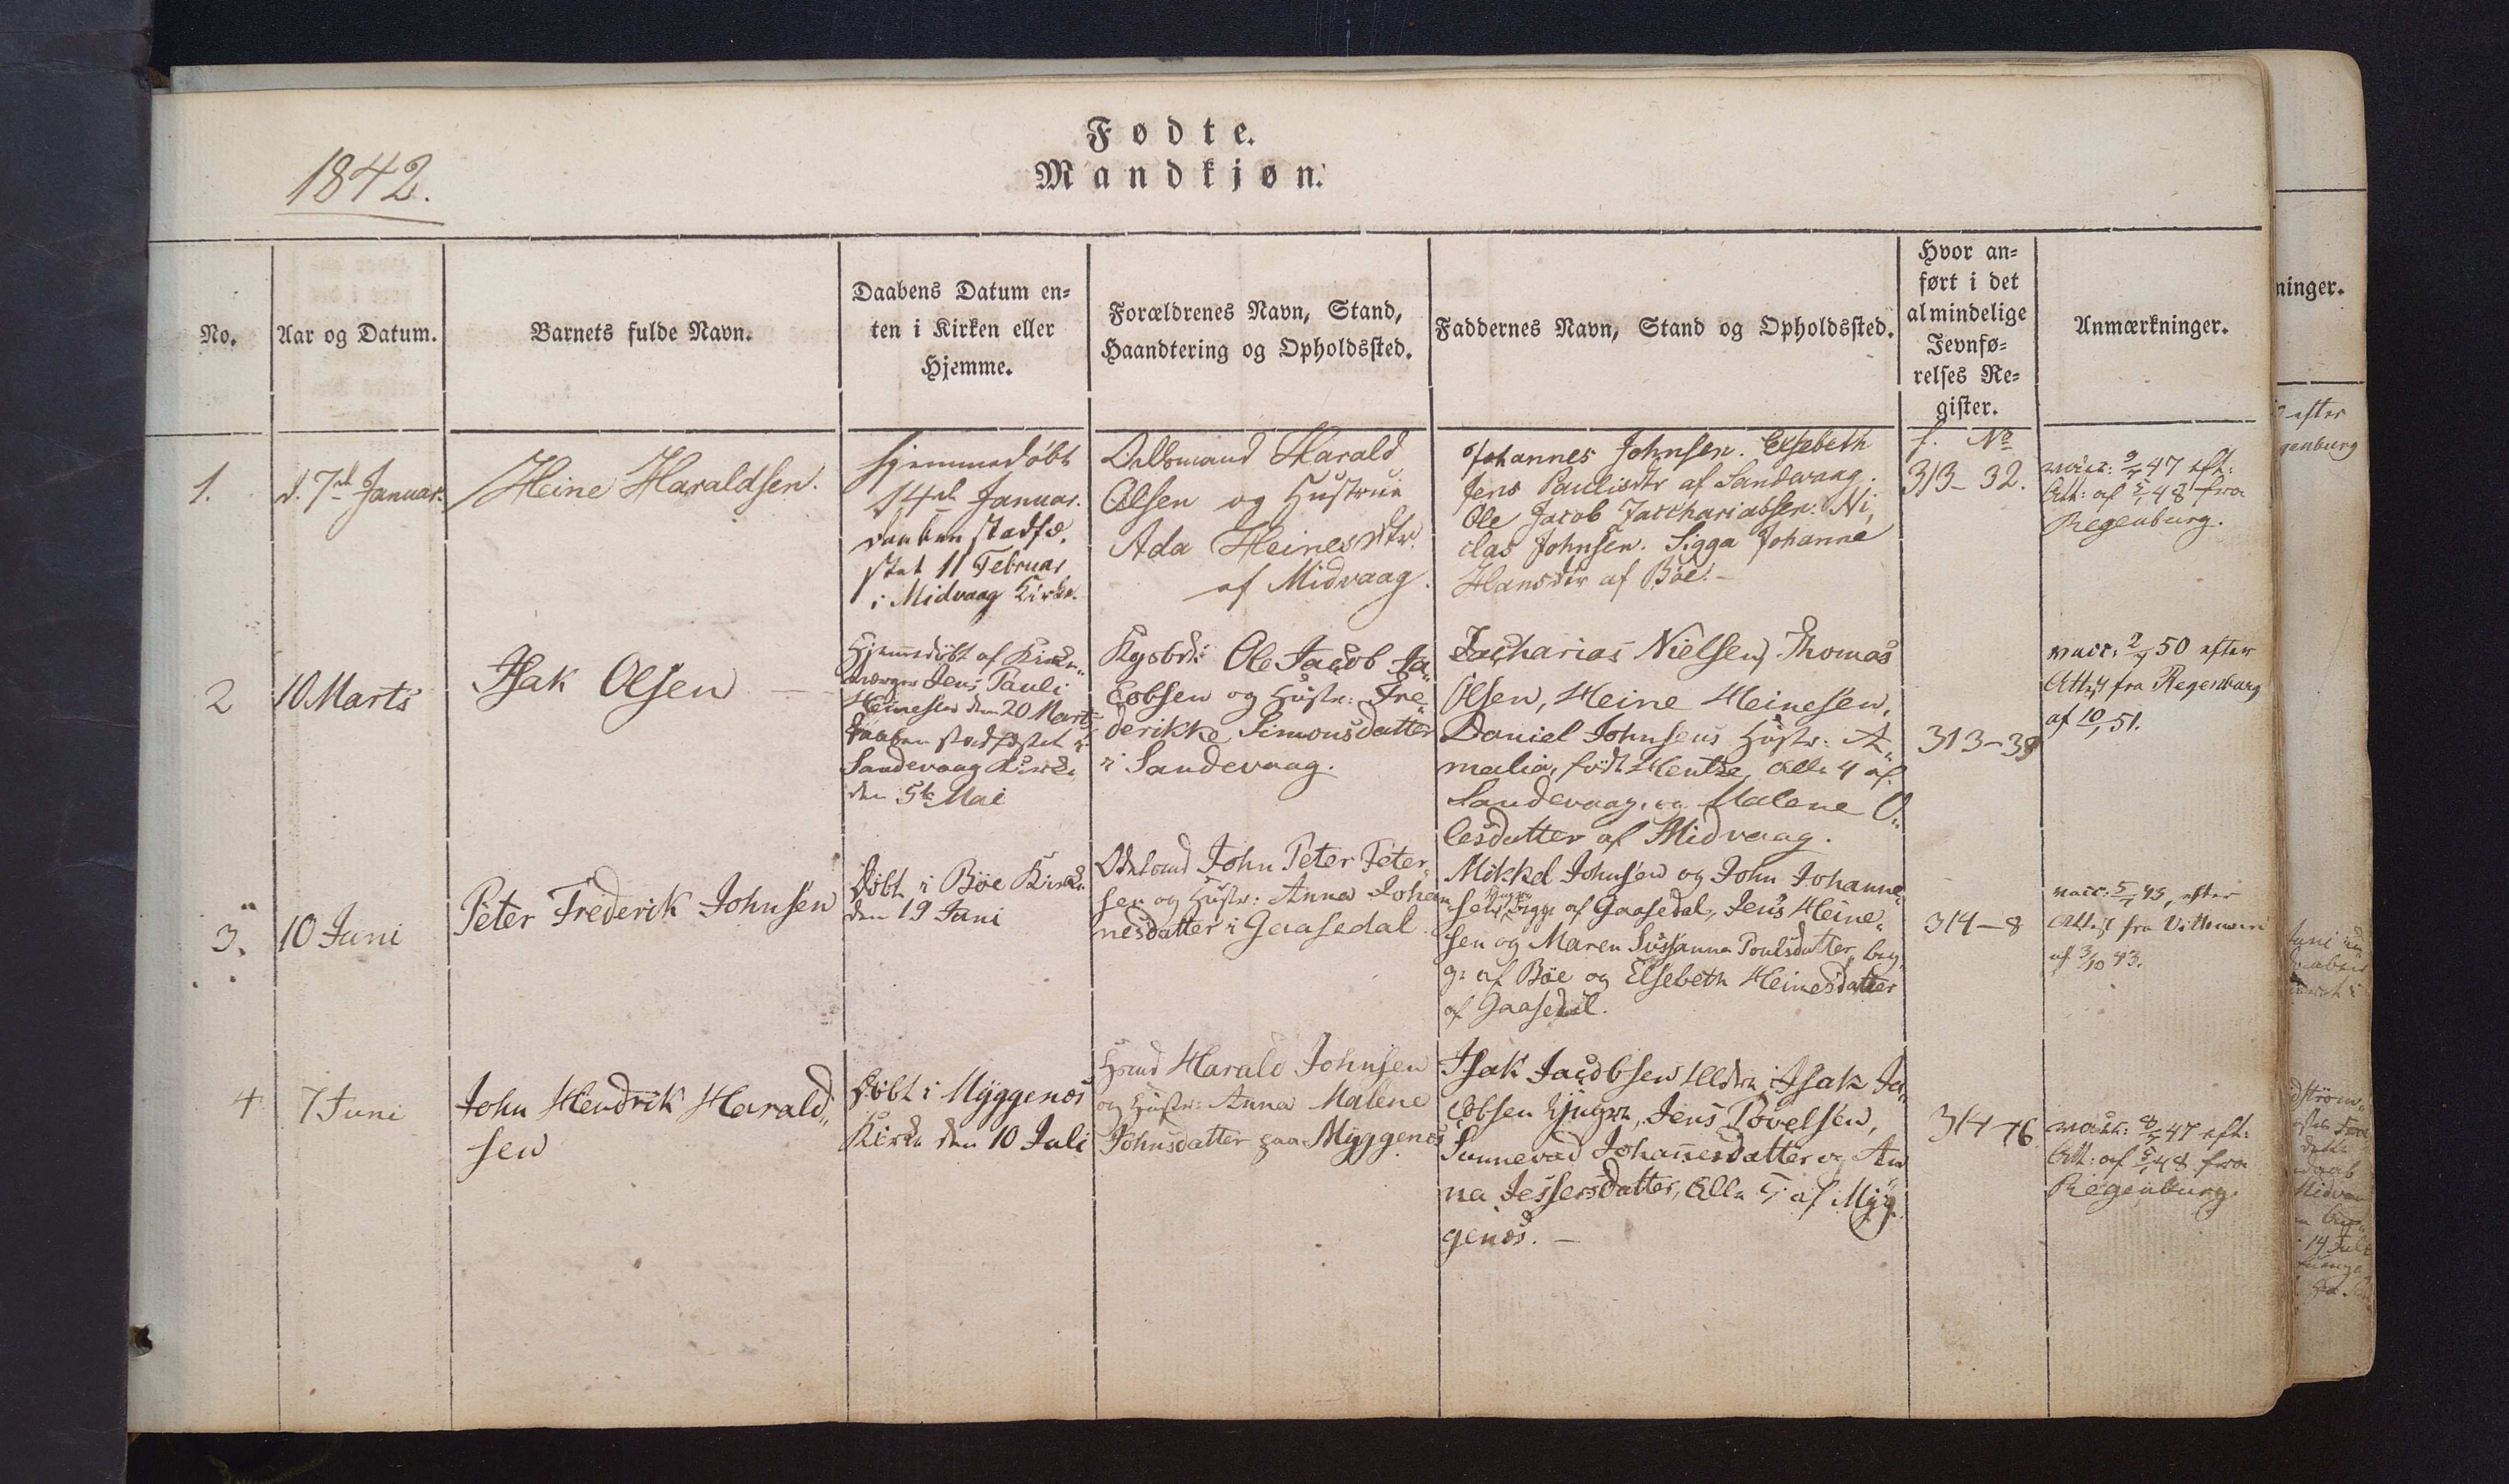 1842.
Fødte.
Mandkjøn.
No.
Aar og Datum.
Barnets fulde Navn.
Daabens Datum en=
ten i Kirken eller
Hjemme.
Forældrenes Navn, Stand,
Haandtering og Opholdssted.
Faddernes Navn, Stand og Opholdssted.
Hvor an=
ført i det
almindelige
Jevnfø=
relses Re=
gister.
Anmærkninger.
1.
d. 7de Januar.
Heine Haraldsen.
hjemmedøbt
14de Januar.
daaben stadfæ,
stet 11 Februar
i Midvaag Kirke.
Odelsmand Harald
Olsen og Hustrue
Ada Heinesdtr.
af Midvaag.
Johannes Johnsen. Elsebeth
Jens Paulisdtr af Sandevaag.
Ole Jacob Zacchariassen. Ni,
clas Johnsen. Sigga Johanne
Hansdtr af Böe.-
f. No
313-32.
vacc: 9/7 47 eft:
Att: af 5/1 48 fra
Regenburg.
2
10 Marts
Isak Olsen
Hjemmedöbt af Kirke"
værger Jens Pauli
Heinesen den 20 Marts,
daaben stadfæstet i
Sandevaag Kirke
den 5te Mai
Kgsbd: Ole Jacob Ja"
cobsen og Hustr: Fre"
derikke Simonsdatter
i Sandevaag.
Zacharias Nielsen, Thomas
Olsen, Heine Heinesen,
Daniel Johnsens Hustr: A"
malia, född Hentze, Alle 4 af
Sandevaag, og Malene O"
lesdatter af Midvaag.
313-39
vacc: 2/7 50 efter
Attest fra Regenburg
af 10/1 51.
3.
10 Juni
Peter Frederik Johnsen
Döbt i Böe Kirke
den 19 Juni
Odelsmd John Peter Peter,
sen og Hustr: Anna Johan
nesdatter i Gaasedal.
Mikkel Johnsen og John Johanne"
sen begge af Gaasedal, Jens Heine"
sen og Maren Sussanna Poulsdatter, beg"
ge af Böe og Elsebeth Heinesdatter
af Gaasedal.
314-8
vacc: 5/7 43, efter
Attest fra
af 3/10 43.
4
7 Juni
John Hendrik Harald"
sen
Döbt i Myggenæs
Kirke den 10 Juli
Hsmd Harald Johnsen
og Hustr: Anna Malene
Johnsdatter paa Myggenæs
Isak Jacobsen Ældre, Isak Ja"
cobsen Yngre, Jens Povelsen,
Sunnevad Johannesdatter og An"
na Jessersdatter, Alle 5 af Myg"
genæs. -
314-16
vacc: 8/7 47 eft:
Att: af 5/1 48 fra
Regenburg.
ninger.
efter
genburg